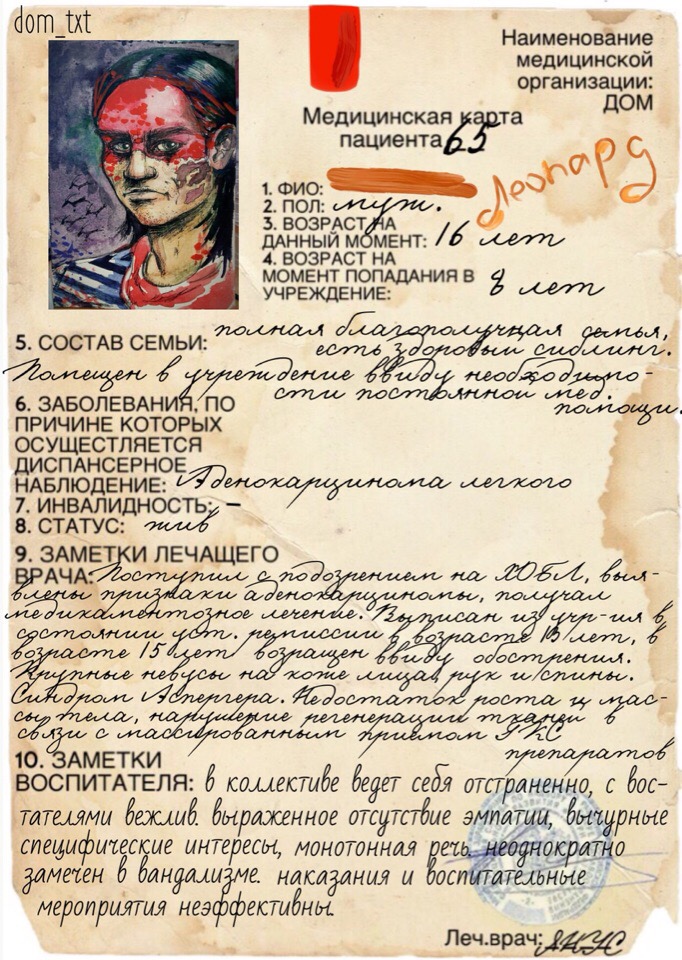 dom_txt
Наименование
медицинской
организации:
ДОМ
Медицинская карта
пациента 65
Леопард
1. ФИО:
2. ПОЛ: муж.
3. ВОЗРАСТ НА
ДАННЫЙ МОМЕНТ: 16 лет
4. ВОЗРАСТ НА
МОМЕНТ ПОПАДАНИЯ В
УЧРЕЖДЕНИЕ: 8 лет
5. СОСТАВ СЕМЬИ: полная благополучная семья,
есть здоровый сиблинг.
Помещен в учреждение ввиду необходимо-
сти постоянной мед.
помощи.
6. ЗАБОЛЕВАНИЯ, ПО
ПРИЧИНЕ КОТОРЫХ
ОСУЩЕСТЛЯЕТСЯ
ДИСПАНСЕРНОЕ
НАБЛЮДЕНИЕ: Аденокарцинома легкого
7. ИНВАЛИДНОСТЬ: –
8. СТАТУС: жив
9. ЗАМЕТКИ ЛЕЧАЩЕГО
ВРАЧА: Поступил с подозрением на ХОБЛ, выя-
влены признаки аденокарциномы, получал
медикаментозное лечение. Выписан из учр-ия в
состоянии уст. ремиссии в возрасте 13 лет, в
возрасте 15 лет возращен ввиду обострения.
Крупные невусы на коже лица, рук и спины.
Синдром Аспергера. Недостаток роста и мас-
сы тела, нарушение регенерации тканей в
связи с массированным приемом ГКС
препаратов
10. ЗАМЕТКИ
ВОСПИТАТЕЛЯ: в коллективе ведет себя отстраненно, с вос-
тателями вежлив. выраженное отсутствие эмпатии, вычурные
специфические интересы, монотонная речь. неоднократно
замечен в вандализме. наказания и воспитательные
мероприятия неэффективны.
Леч.врач: ЯНУС